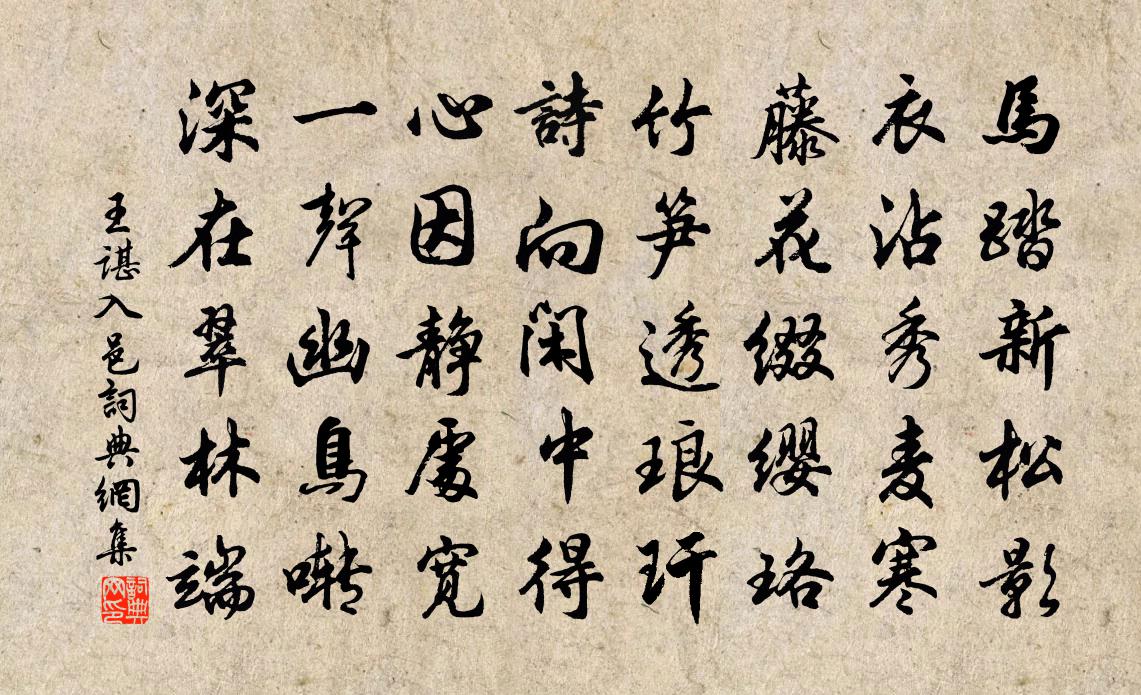 馬踏新松影
衣沾秀麦寒
藤花綴纓珞
竹笋透琅玕
詩向閑中得
心因静處寬
一聲幽鳥囀
深在翠林端
王諶入邑詞典網集
詞典網印